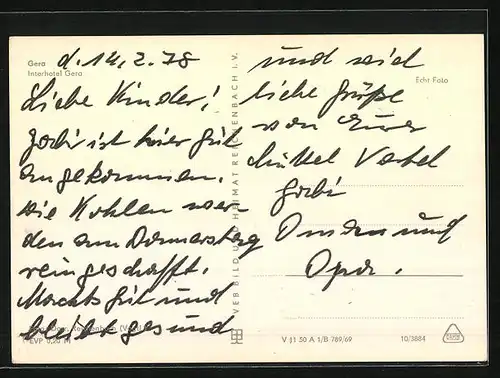 Gera
Interhotel Gera
d. 14.2.78
Liebe Kinder!
Gabi ist hier gut
angekommen.
die Kohlen wer-
den am Donnerstag
reingeschafft.
Machts gut und
bleibt gesund
EVP 0,20 M
VEB BILD UND HEIMAT REICHENBACH I. V.
und viel
Echt Foto
liebe Grüße
von Eurer
Gabi
Oma und
Opa.
V 11 50 A 1/B 789/69
10/3884